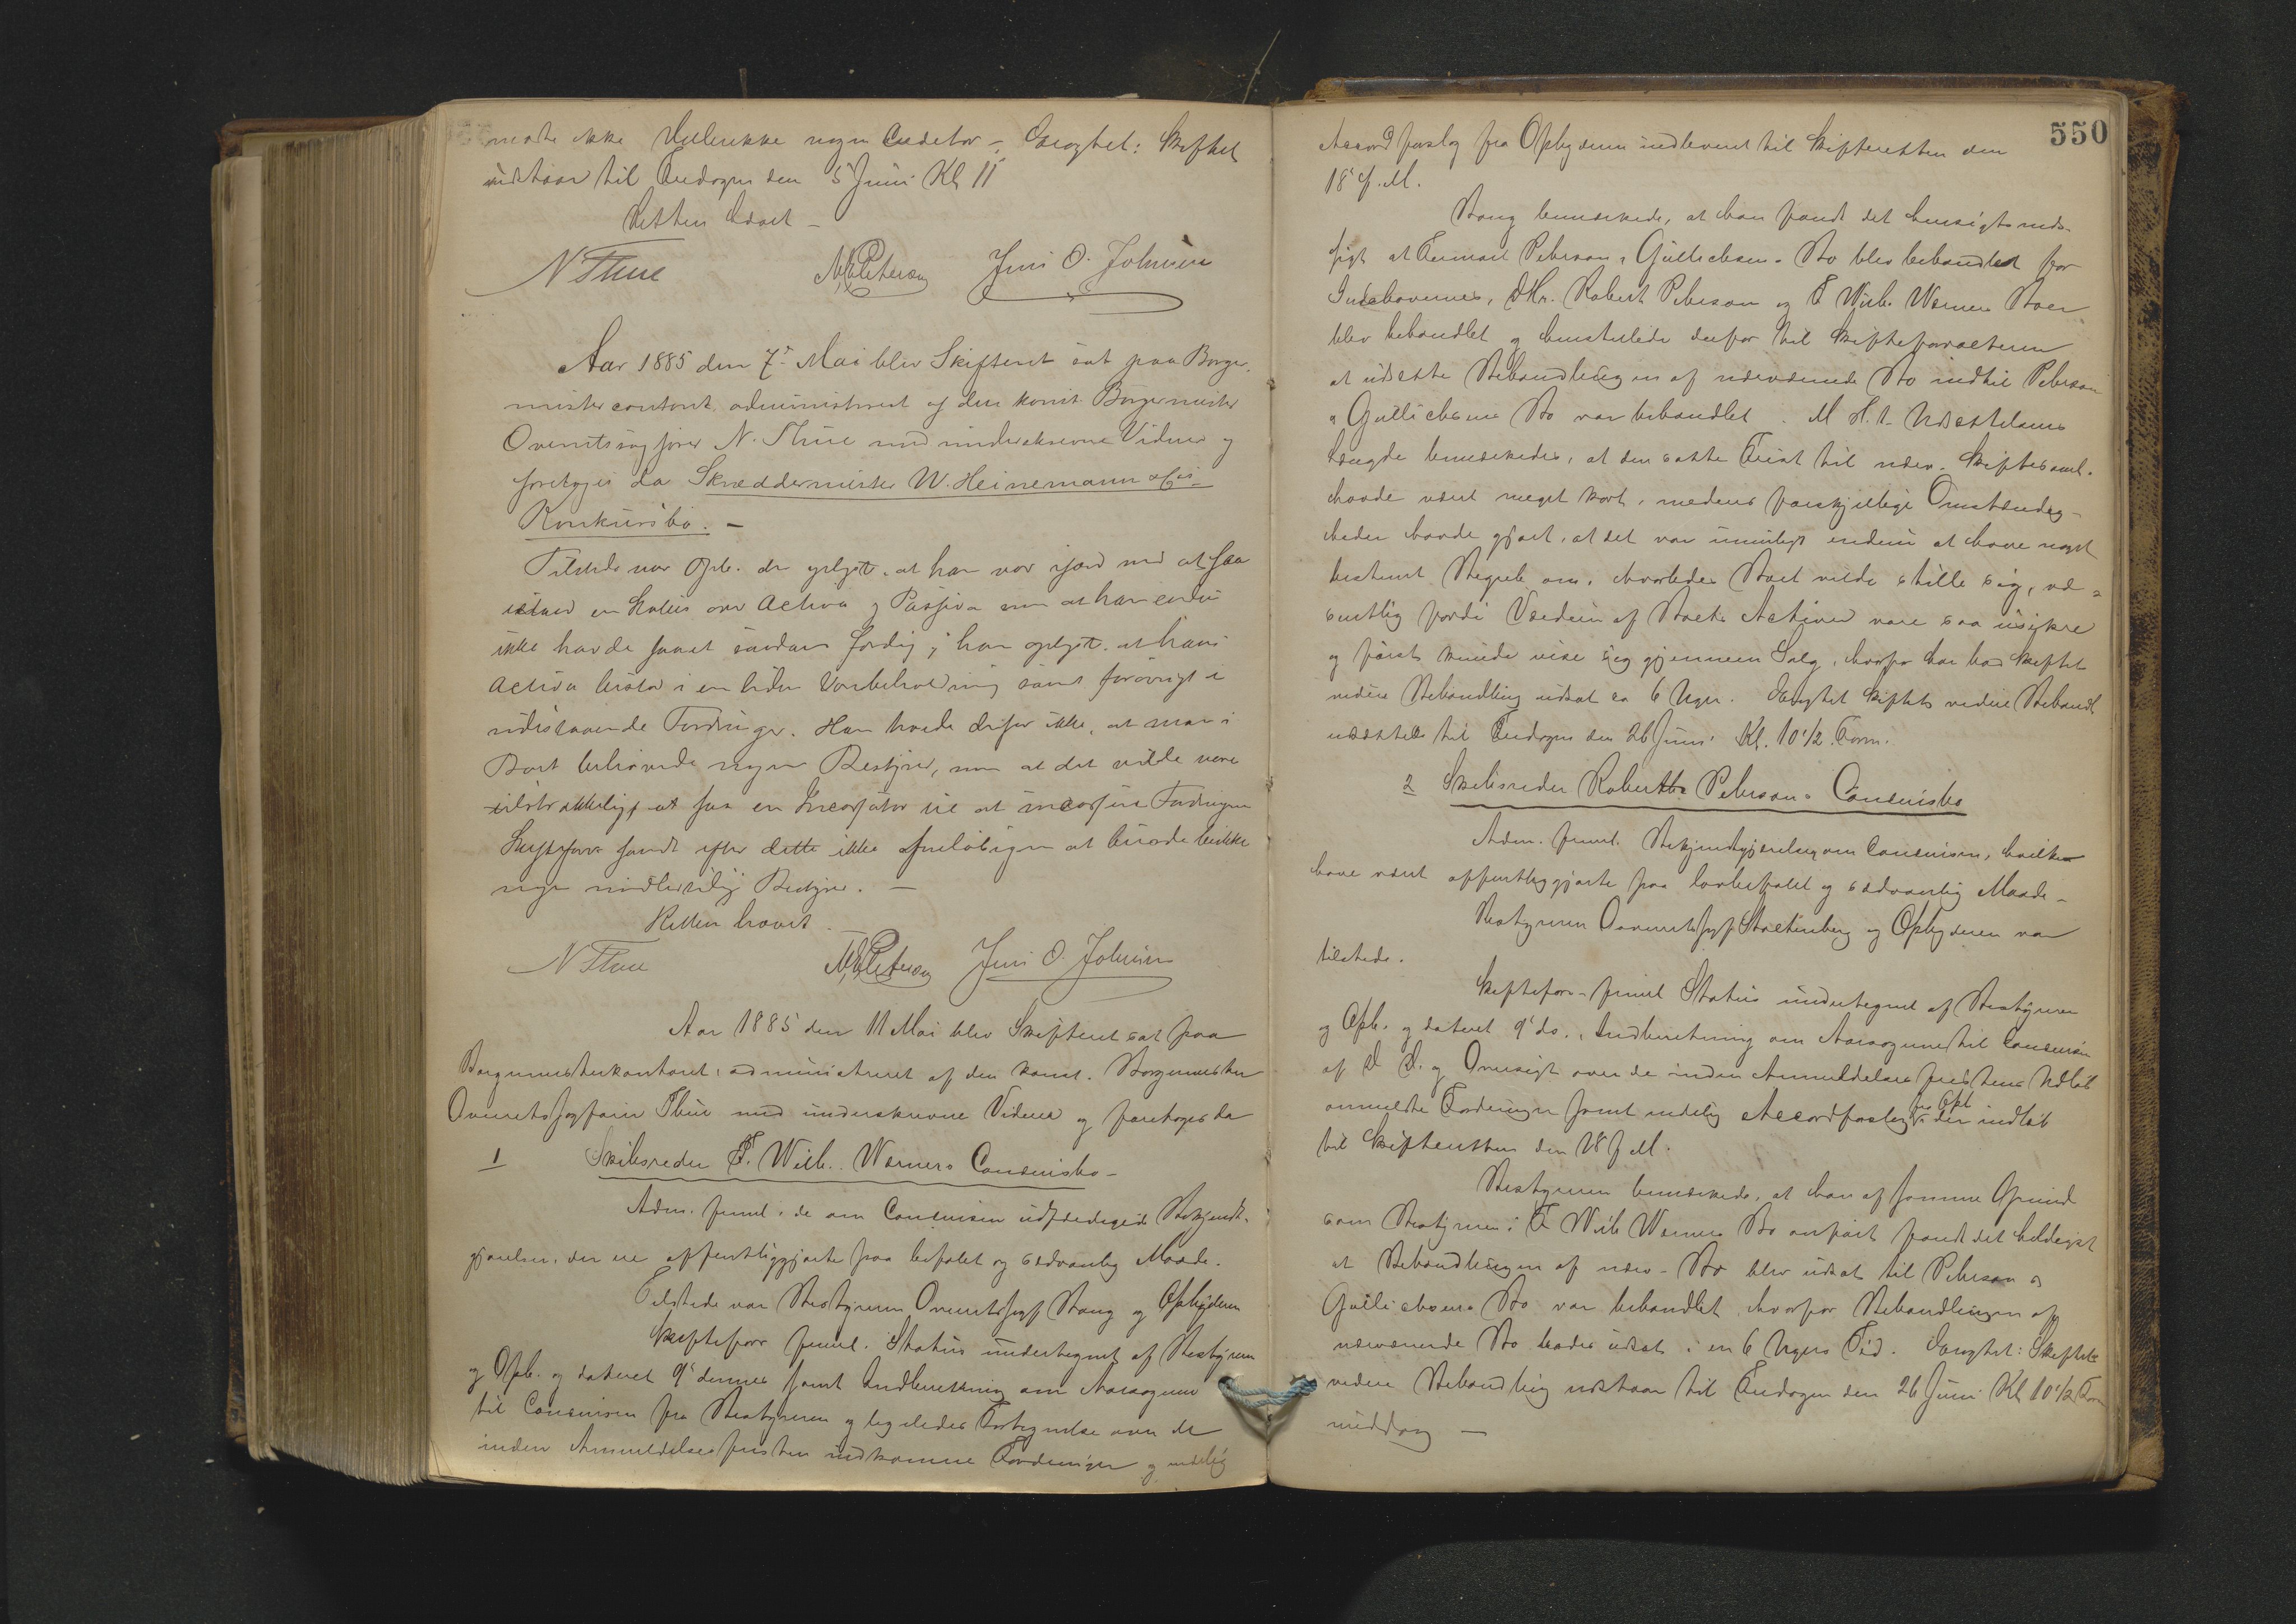 mødte ikke Heller ikke nogen Creditor – Eragtet: Skiftet
udstaar til Fredagen den 5 Juni Kl 11
Retten hævet –
N Thue M. Petersen Jens O. Johnsen
Aar 1885 den 7de Mai blev Skifteret sat paa Borge-
mestercontoret, administreret af den konst. Borgermester
Overretssagfører N. Thue med underskrevne Vidner og
foretoges da Skræddermester W. Heinemann
Konkursbo. –
Tilstede var Opb. der oplyste, at han var ifærd med at faa
istand en Status over Activa og Passiva men at han endnu
ikke havde faaet saadan færdig; han oplyste, at hans
Activa bestod i en liden Varebeholdning samt forøvrigt i
udestaaende Fordringer. Han troede derfor ikke, at man i
Boet behøvede nogen Bestyrer, men at det vilde være
tilstrækkeligt at faa en Incassator til at incassere Fordringerne
Skifteforv. fandt efter dette ikke foreløbigen at burde beskikke
nogen midlertidig Bestyrer. –
Retten hævet.
N Thue M. Petersen Jens O. Johnsen
Aar 1885 den 11 Mai blev Skifteret sat paa
Borgermesterkontoret, administreret af den konst. Borgermester
Overretssagfører Thue med underskrevne Vidner og foretoges da
1 Skibsreder F. Wilh. Werners Concursbo –
Adm. freml. de om Concursen udfærdigede Bekjendt-
gjørelser, der ere offentliggjorte paa befalet og sædvanlig Maade.
Tilstede var Bestyreren Overretssagf Stang og Opbyderen
Skifteforv freml. Status undertegnet af Bestyreren
og Opb. og dateret 9de dennes samt Indberetning om Aarsagerne
til Concursen fra Bestyreren og ligeledes Fortegnelse over de
inden Anmeldelsesfristen indkomne Fordringer og endelig
550
Accordforslag fra Opbyderen indleveret til Skifteretten den
18de f. M.
Stang bemærkede, at han fandt det hensigtsmæs-
sigt at Firmaet Peterson & Gullichsens Bo blev behandlet før
Indehavernes, DHr. Robert Peterson og F Wilh. Werners Boer
blev behandlet og henstillede derfor til Skifteforvalteren
at udsætte Behandlingen af nærværende Bo indtil Peterson
& Gullichsens Bo var behandlet. M. H. t. Udsættelsens
Længde bemærkedes, at den satte Frist til nærv. Skiftesaml.
havde været meget kort, medens forskjellige Omstændig-
heder havde gjort, at det var umuligt endnu at have noget
bestemt Begreb om, hvorledes Boet vilde stille sig, væ-
sentlig fordi Værdien af Boets Activer vare saa usikre
og først kunde vise sig gjennem Salg, hvorfor han bad Skiftet
videre Behandling udsat ca 6 Uger. Eragtet Skiftets videre Behandl.
udsættes til Fredagen den 26 Juni Kl. 10 1/2 Form.
2 Skibsreder Roberth Petersons Concursbo
Adm. freml. Bekjendtgjørelser om Concursen, hvilken
have været offentliggjorte paa lovbefalet og sædvanlig Maade –
Bestyreren Overretssagf Stoltenberg og Opbyderen var
tilstede.
Skifteforv. freml Status undertegnet af Bestyreren
og Opb. og dateret 9de ds., Indberetning om Aarsagerne til Concursen
af D. D. og Oversigt over de inden Anmeldelsesfristens Udløb
anmeldte Fordringer samt endelig Accordforslag fra Opb. der indløb
til Skifteretten den 18 f M.
Bestyreren bemærkede, at han af samme Grund
som Bestyreren i F Wilh Werners Bo anført fandt det heldigst
at Behandlingen af nærv. Bo blev udsat til Peterson &
Gullichsens Bo var behandlet, hvorfor Behandlingen af
nærværende Bo bades udsat i en 6 Ugers Tid. Eragtet: Skiftets
videre Behandling udstaar til Fredagen den 26 Juni Kl 10 1/2 For-
middag –